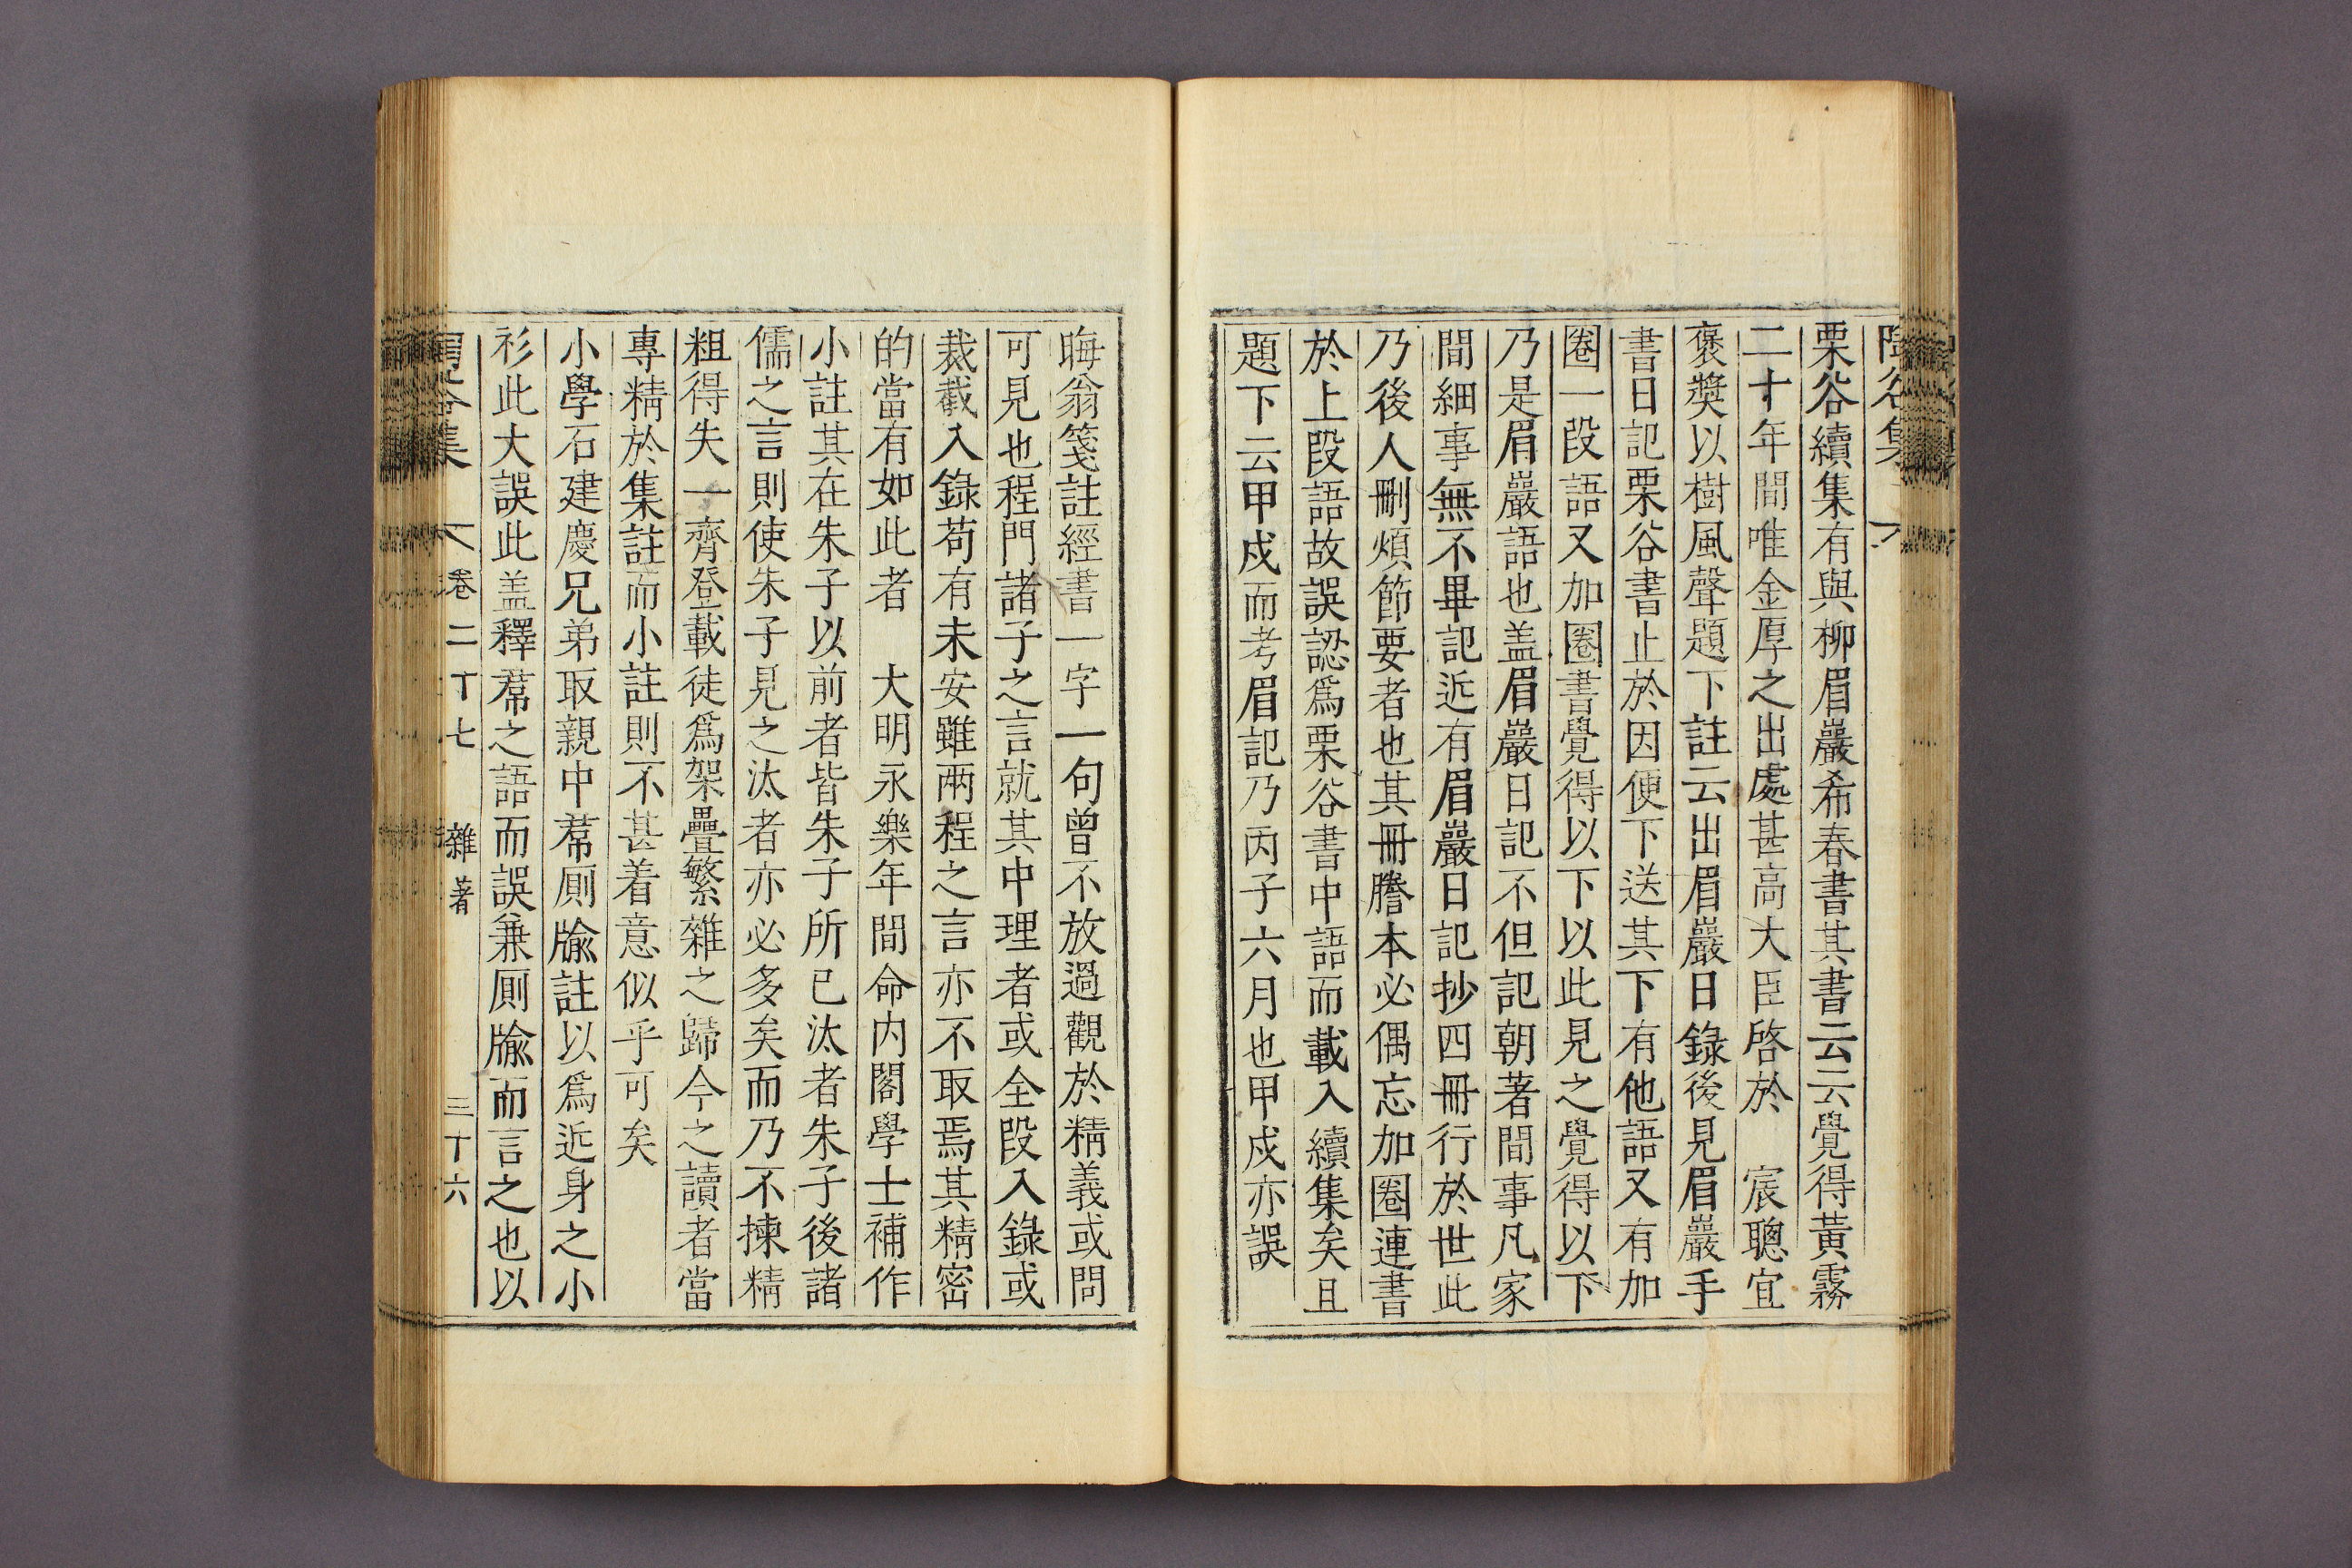 栗谷續集有與柳眉巖希春書其書云云覺得黃霧
二十年間唯金厚之出處甚高大臣啓於 宸聰宜
褒奬以樹風聲題下註云出眉巖日錄後見眉巖手
書日記栗谷書止於因便下送其下有他語又有加
圈一段語又加圈書覺得以下以此見之覺得以下
乃是眉巖語也盖眉巖日記不但記朝著間事凡家
間細事無不畢記近有眉巖日記抄四冊行於世此
乃後人刪煩節要者也其冊謄本必偶忘加圈連書
於上段語故誤認爲栗谷書中語而載入續集矣且
題下云甲戌而考眉記乃丙子六月也甲戌亦誤
晦翁箋註經書一字一句曾不放過觀於精義或問
可見也程門諸子之言就其中理者或全段入錄或
裁截入錄苟有未安雖兩程之言亦不取焉其精密
的當有如此者 大明永樂年間命内閣學士補作
小註其在朱子以前者皆朱子所已汰者朱子後諸
儒之言則使朱子見之汰者亦必多矣而乃不揀精
粗得失一齊登載徒爲架疊繁雜之歸今之讀者當
專精於集註而小註則不甚着意似乎可矣
小學石建慶兄弟取親中帬厠牏註以爲近身之小
衫此大誤此盖釋帬之語而誤兼厠牏而言之也以
集 卷二十七 雜著 三十六